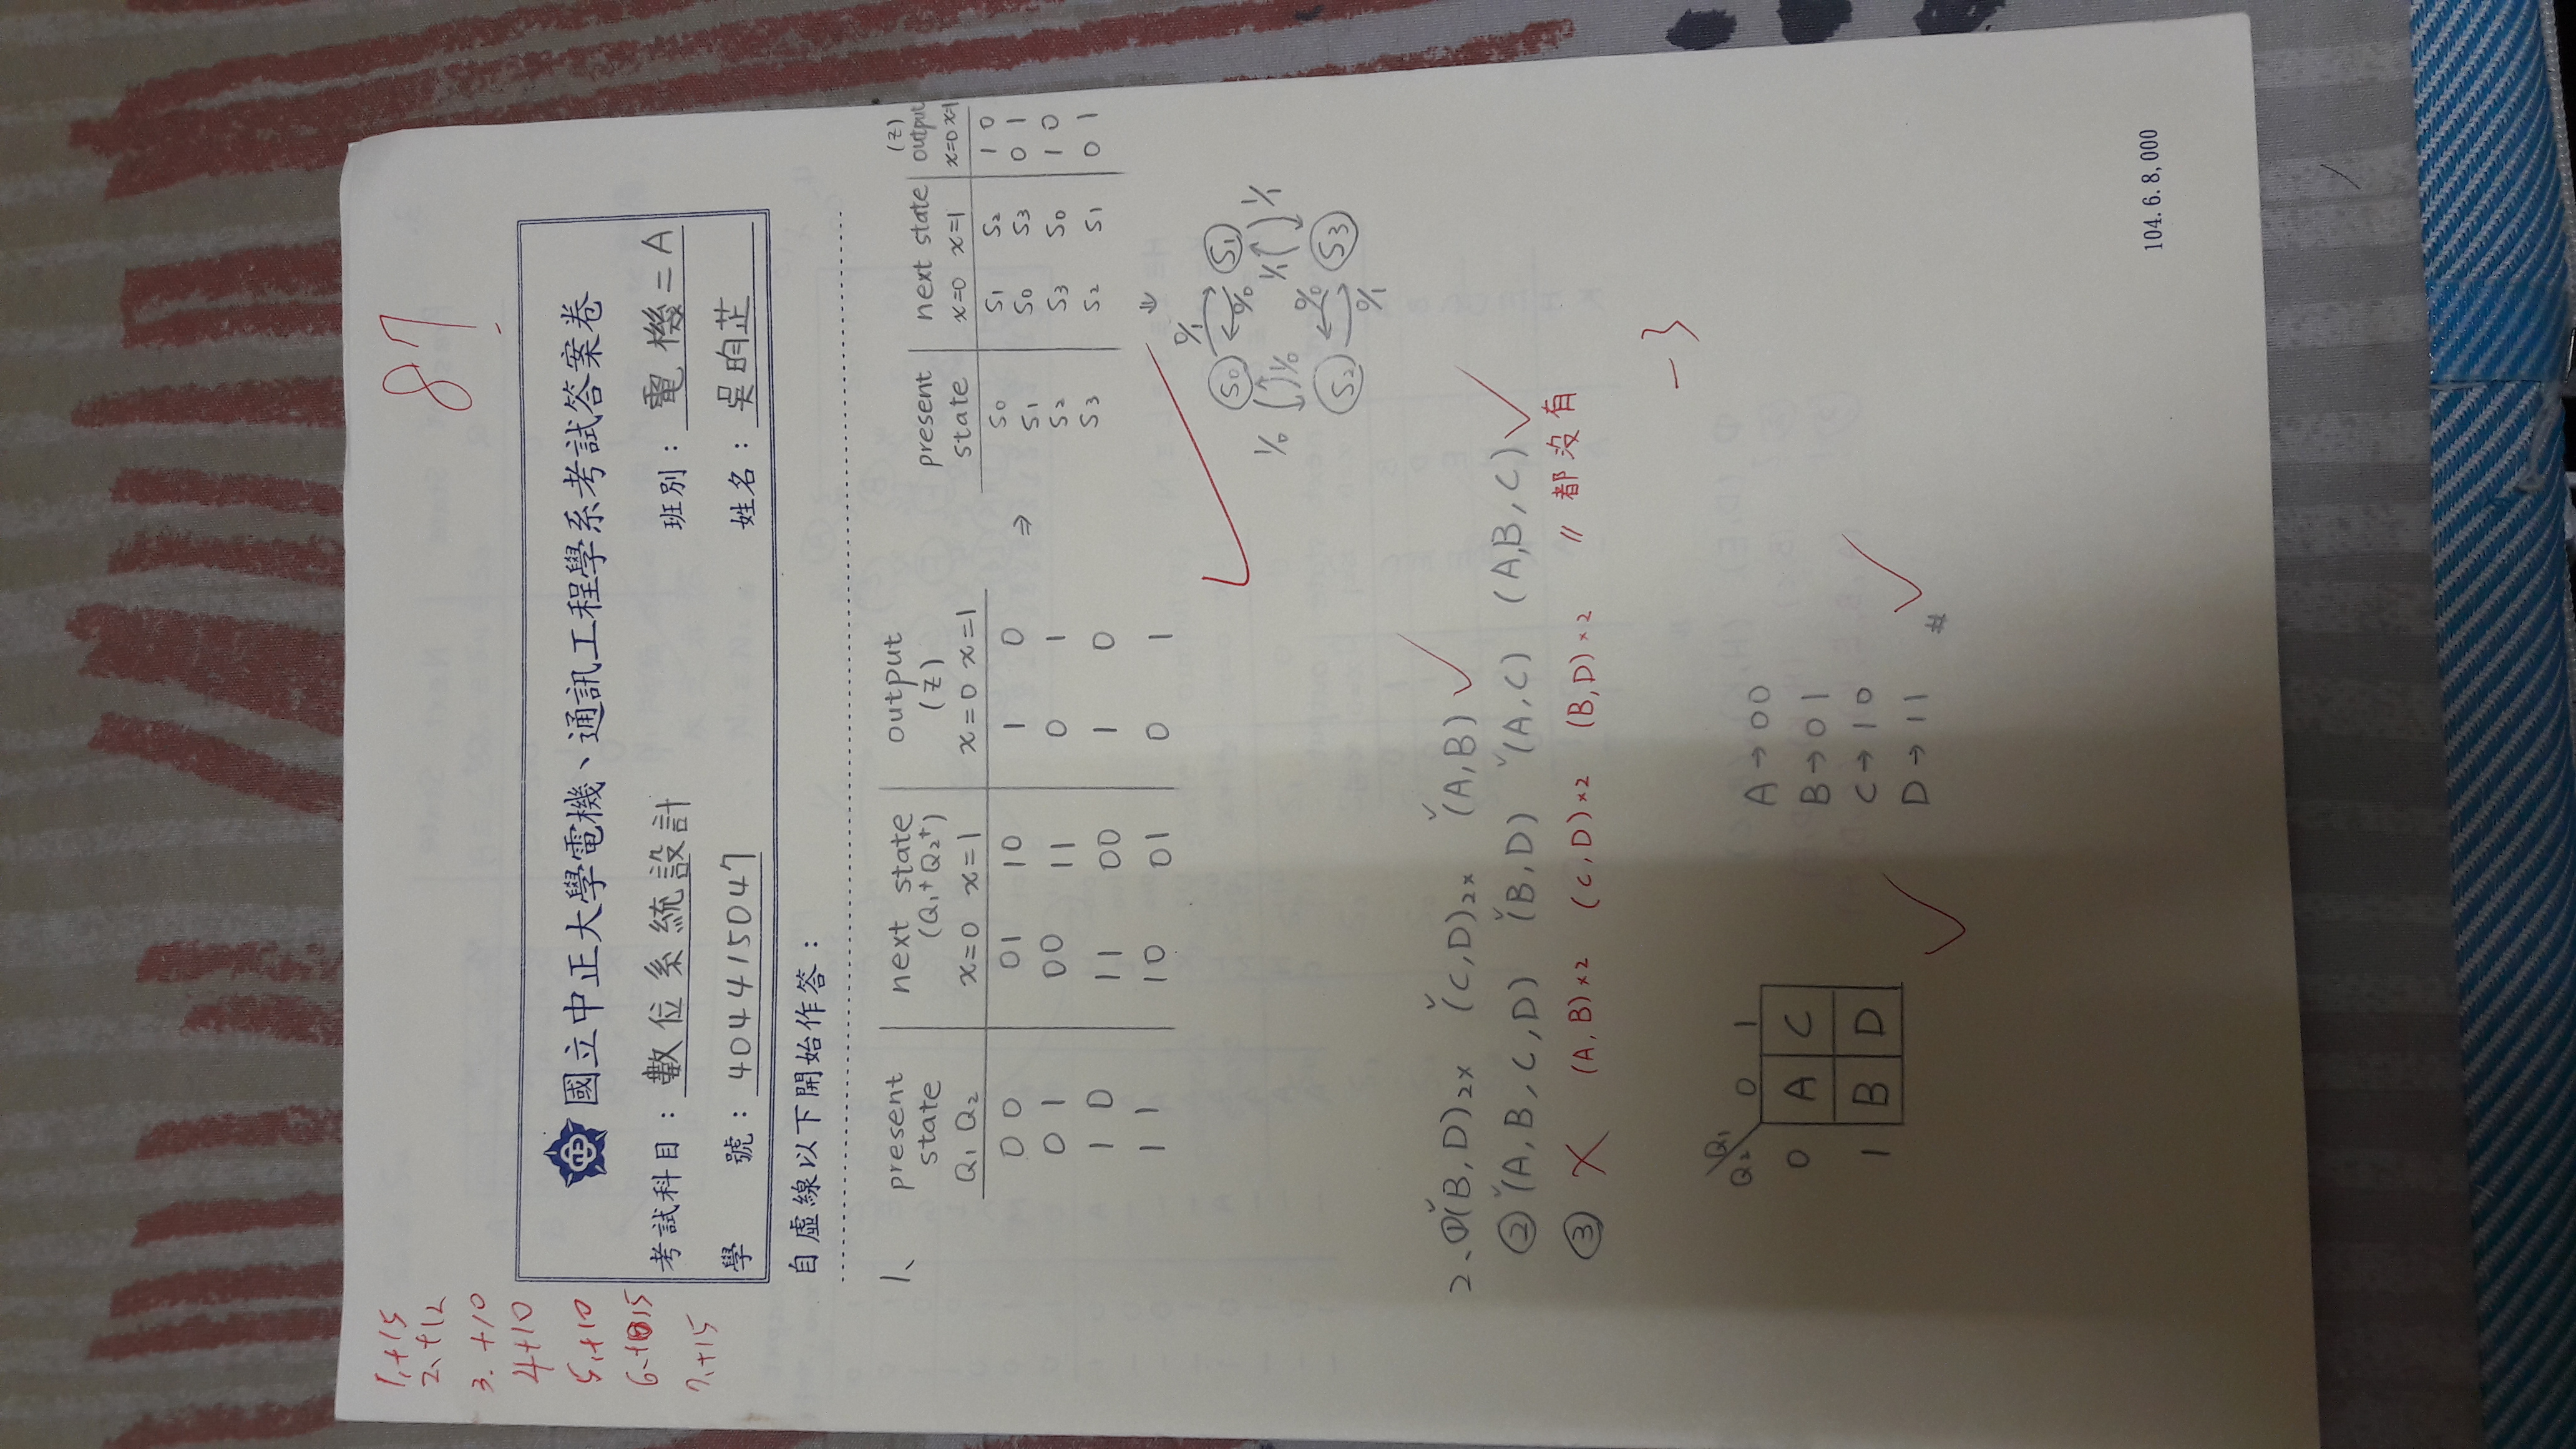 1、+15
2、+12
3. +10
4+10
5、+10
6、+15
7、+15
87
國立中正大學電機、通訊工程學系考試答案卷
考試科目：數位系統設計 班別：電機二A
學 號：404415047 姓名：吳昀芷
自虛線以下開始作答：
1、 present next state output
state (Q₁⁺Q₂⁺) (Z)
Q₁ Q₂ x=0 x=1 x=0 x=1
0 0 01 10 1 0
0 1 00 11 0 1
1 0 11 00 1 0
1 1 10 01 0 1
⇒
(Z)
present next state output
state x=0 x=1 x=0 x=1
S₀ S₁ S₂ 1 0
S₁ S₀ S₃ 0 1
S₂ S₃ S₀ 1 0
S₃ S₂ S₁ 0 1
⇓
0/1
S₀ S₁
0/0
1/0 1/0 1/1 1/1
0/0
S₂ S₃
0/1
2、①(B,D)₂ₓ (C,D)₂ₓ (A,B)
② (A,B,C,D) (B,D) (A,C) (A,B,C)
③ X (A,B)×2 (C,D)×2 (B,D)×2 // 都沒有
-3
Q₁
Q₂ 0 1
0 A C
1 B D
A→00
B→01
C→10
D→11 #
104.6.8,000